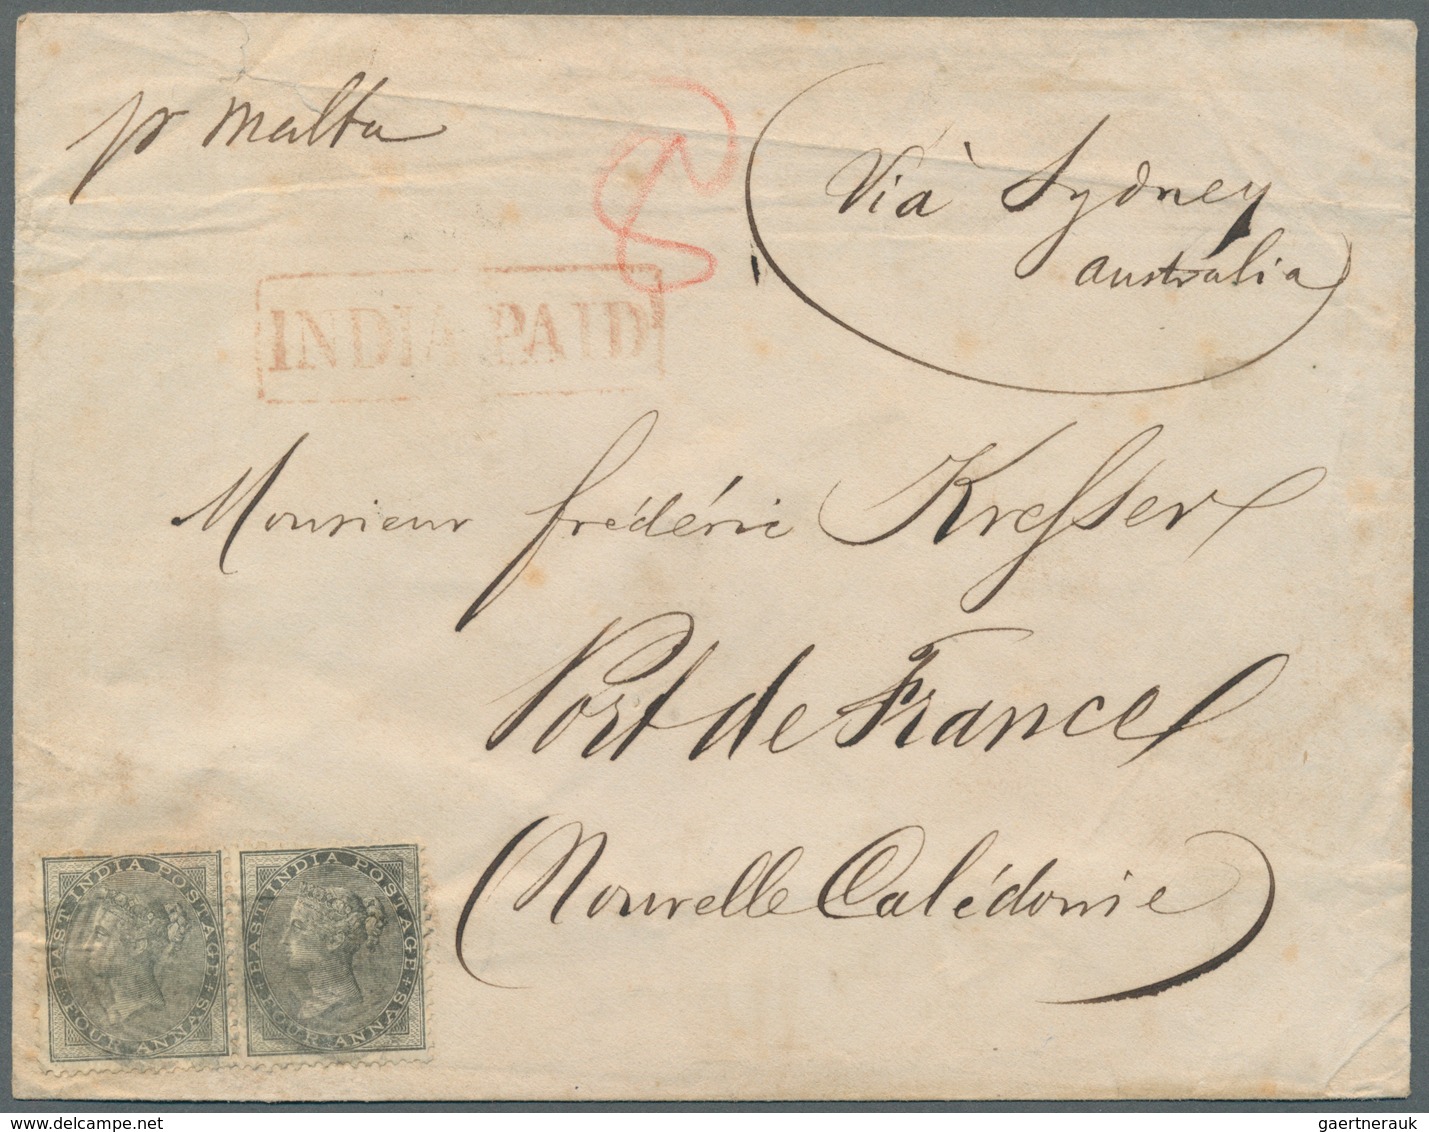 pr Malta
Vià Sydney
Australia
8
INDIA PAID
Monsieur frédéric Kresser
Port de France
(Nouvelle Calédonie)
EAST INDIA POSTAGE
FOUR ANNAS
EAST INDIA POSTAGE
FOUR ANNAS
www.delcampe.net
gaertnerauk